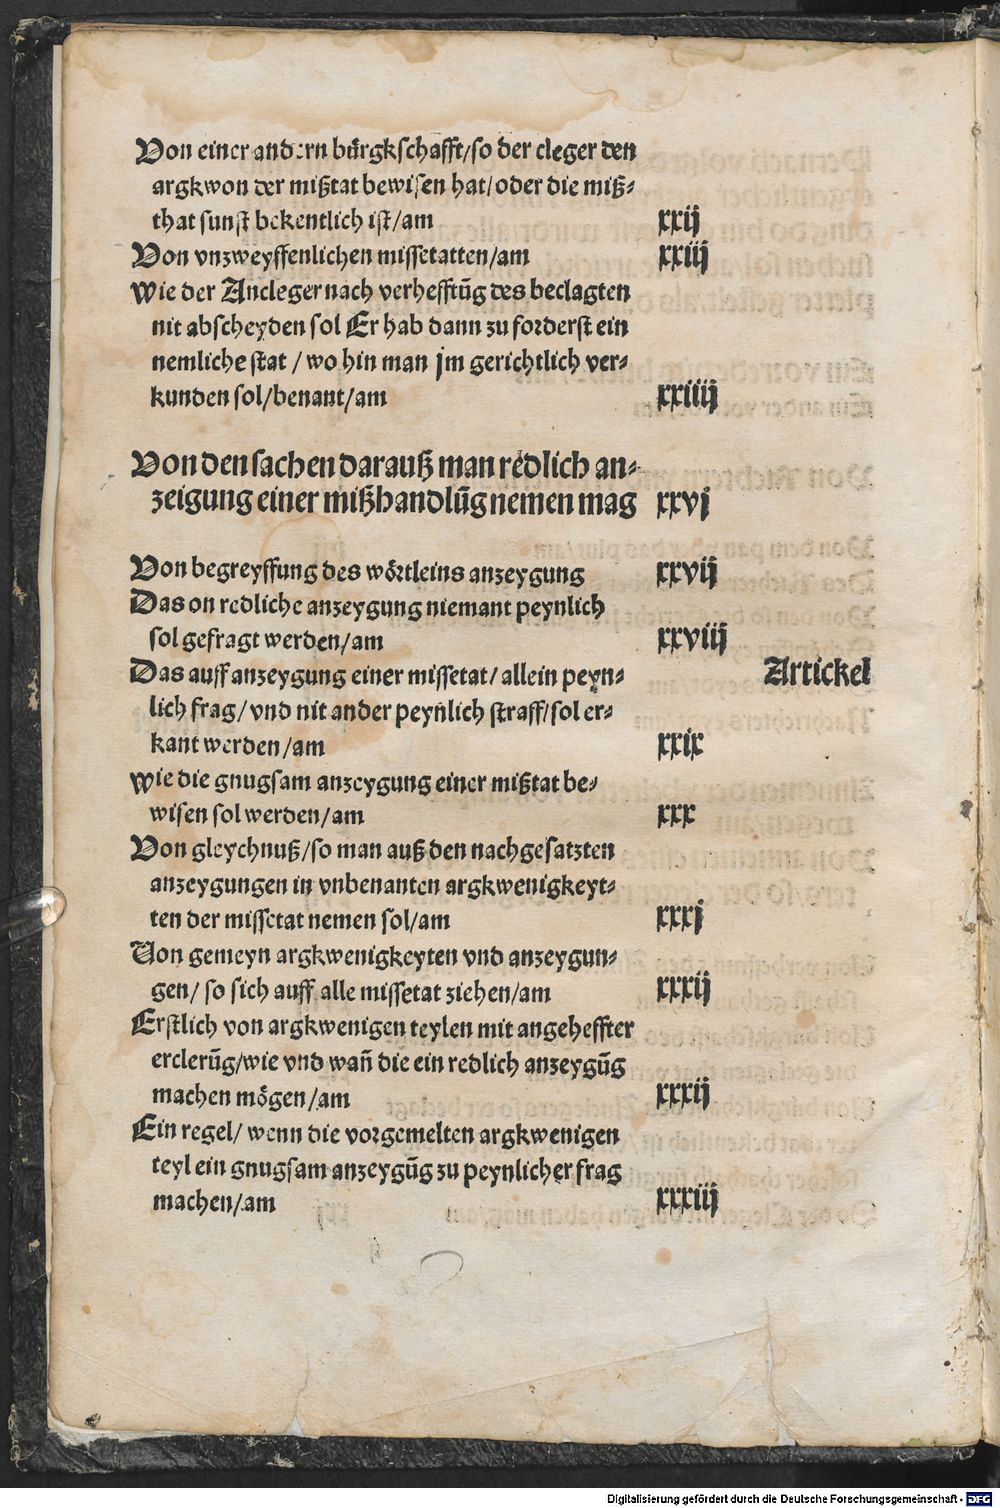 Von einer andern bürgkschafft/so der cleger den
argkwon der mißtat bewisen hat/oder die miß-
that sunst bekentlich ist/am xxij
Von vnzweyffenlichen missetatten/am xxiij
Wie der Ancleger nach verhefftūg des beclagten
nit abscheyden sol Er hab dann zu forderst ein
nemliche stat / wo hin man jm gerichtlich ver-
kunden sol/benant/am xxiiij
Von den sachen darauß man redlich an-
zeigung einer mißhandlūg nemen mag xxvj
Von begreyffung des wörtleins anzeygung xxvij
Das on redliche anzeygung niemant peynlich
sol gefragt werden/am xxviij
Das auff anzeygung einer missetat/ allein peyn-
lich frag/ vnd nit ander peynlich straff/sol er-
kant werden/am xxix
Artickel
Wie die gnugsam anzeygung einer mißtat be-
wisen sol werden/am xxx
Von gleychnuß/so man auß den nachgesatzten
anzeygungen in vnbenanten argkwenigkeyt-
ten der missetat nemen sol/am xxxj
Von gemeyn argkwenigkeyten vnd anzeygun-
gen/ so sich auff alle missetat ziehen/am xxxij
Erstlich von argkwenigen teylen mit angeheffter
erclerūg/wie vnd wañ die ein redlich anzeygūg
machen mögen/am xxxij
Ein regel/ wenn die vorgemelten argkwenigen
teyl ein gnugsam anzeygūg zu peynlicher frag
machen/am xxxiij
Digitalisierung gefördert durch die Deutsche Forschungsgemeinschaft - DFG